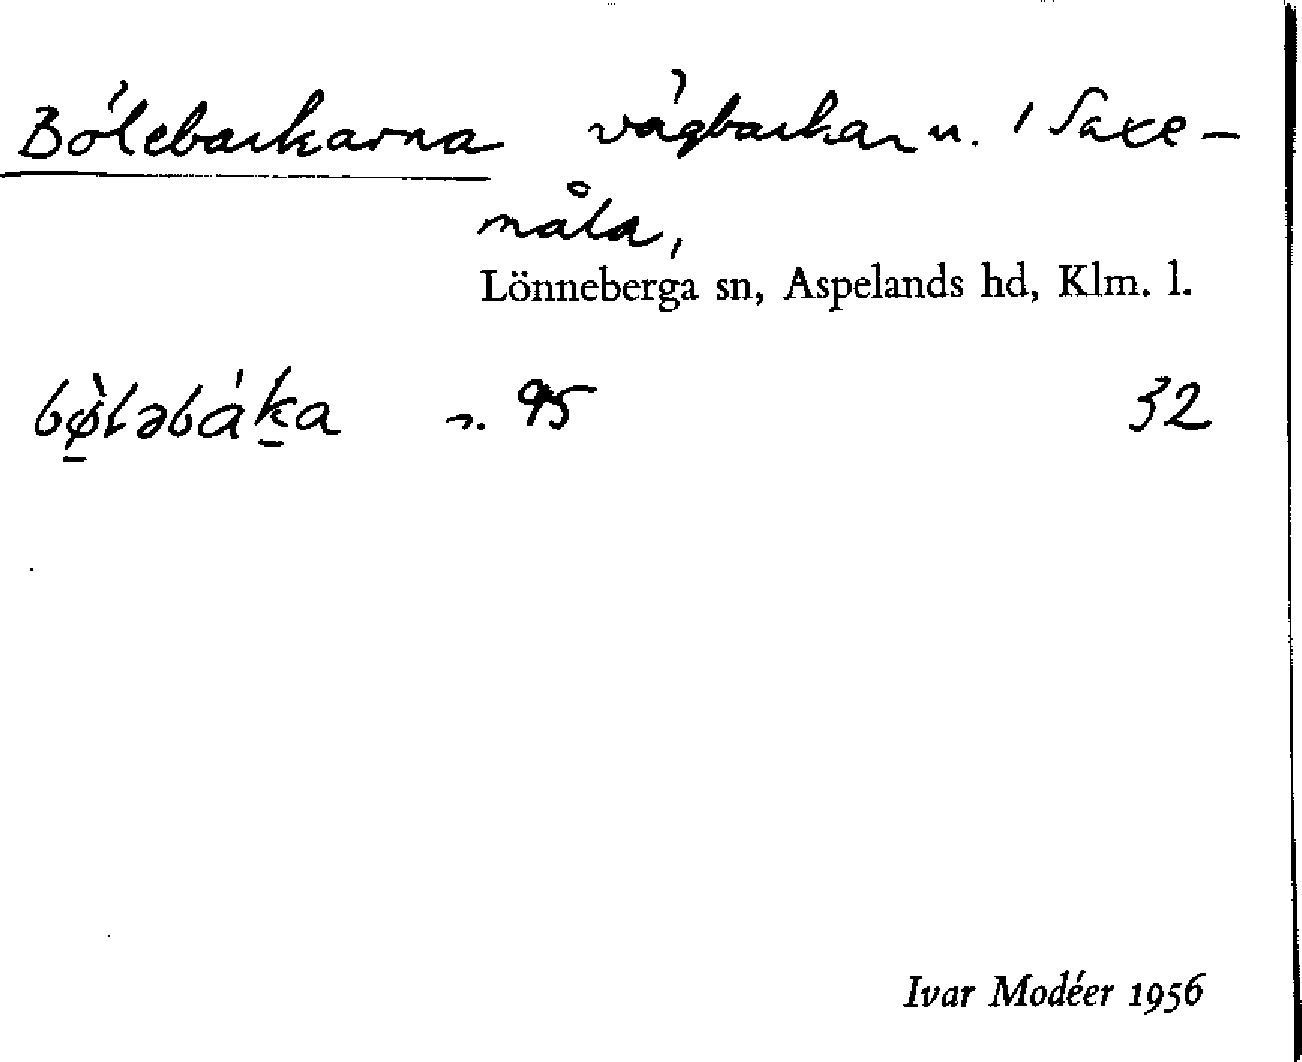 Bölebackarna vägbackar n. i Saxe-
måla,
Lönneberga sn, Aspelands hd, Klm. l.
bø̱̀ləbáḵa n. 95 32
Ivar Modéer 1956